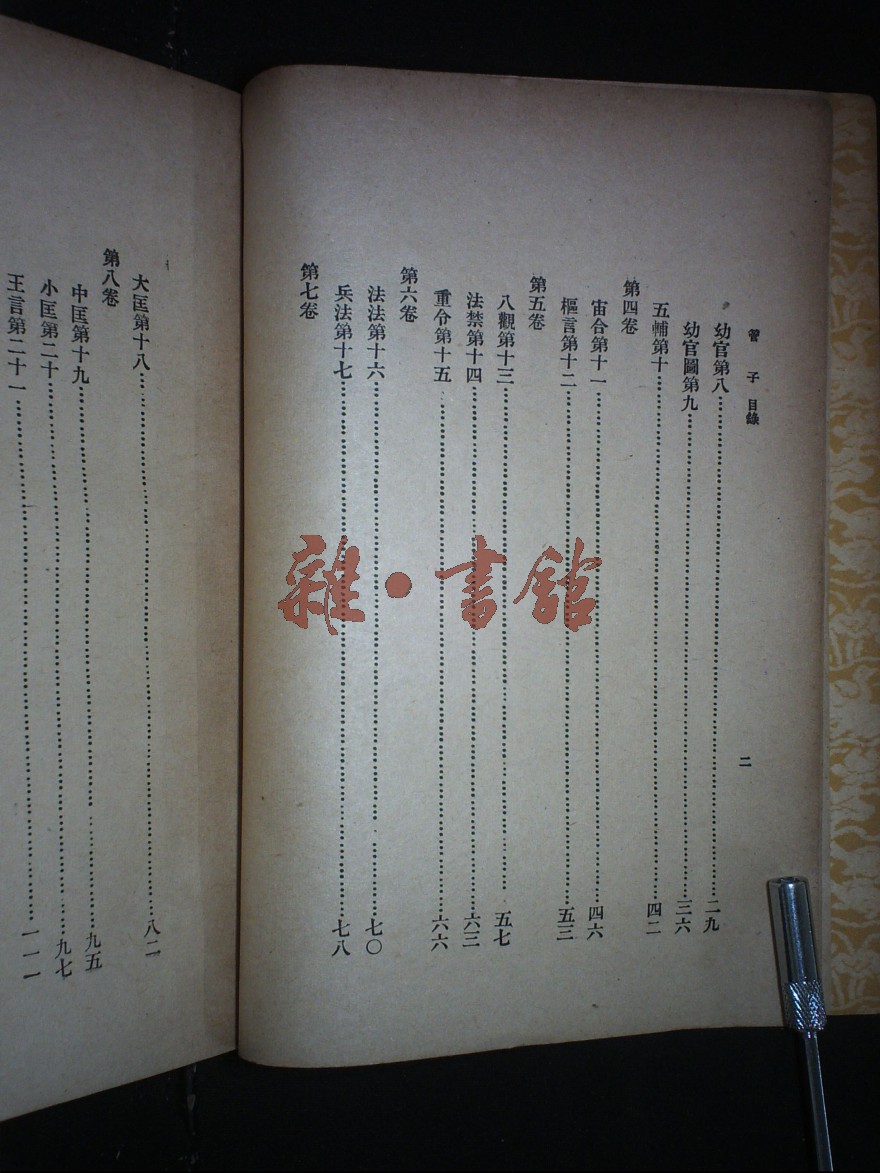 管子 目錄
二
幼官第八……二九
幼官圖第九……三六
五輔第十……四二
第四卷
宙合第十一……四六
樞言第十二……五三
第五卷
八觀第十三……五七
法禁第十四……六三
重令第十五……六六
第六卷
法法第十六……七〇
兵法第十七……七八
第七卷
大匡第十八……八二
第八卷
中匡第十九……九五
小匡第二十……九七
王言第二十一……一一一
雜·書館